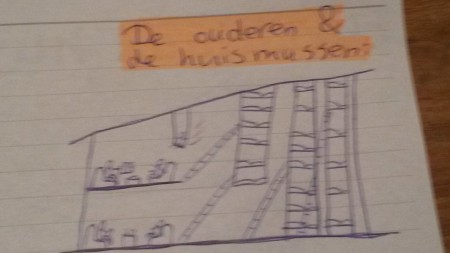 De ouderen &
de huismussen: